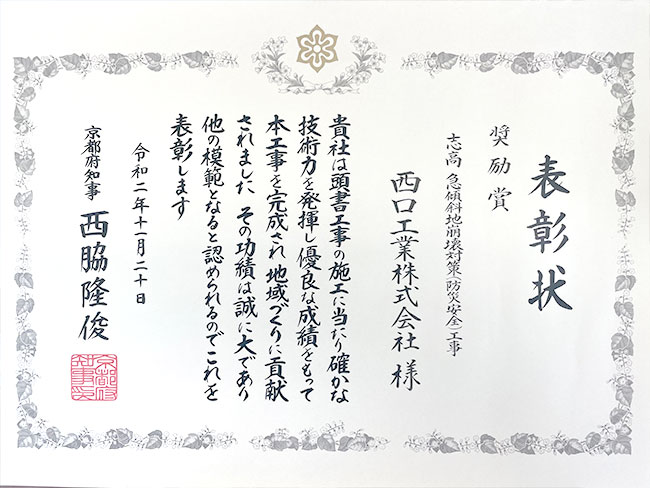 表彰状
奨励賞
志高 急傾斜地崩壊対策(防災安全)工事
西口工業株式会社 様
貴社は頭書工事の施工に当たり確かな
技術力を発揮し優良な成績をもって
本工事を完成され 地域づくりに貢献
されました その功績は誠に大であり
他の模範となると認められるのでこれを
表彰します
令和二年十一月二十日
京都府知事 西脇隆俊
京都府
知事印